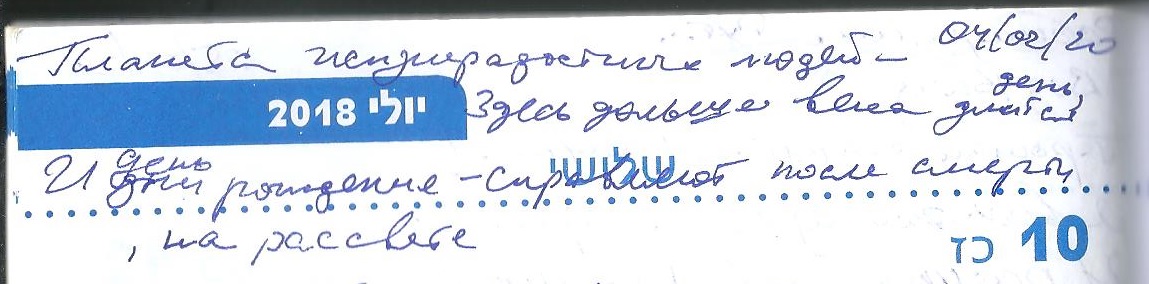 Планета жизнерадостных людей – 04/02/20
день,
יולי 2018 Здесь дольше века длится
день
И дни рождение – справляют после смерти
שלישי
, на рассвете
כז 10